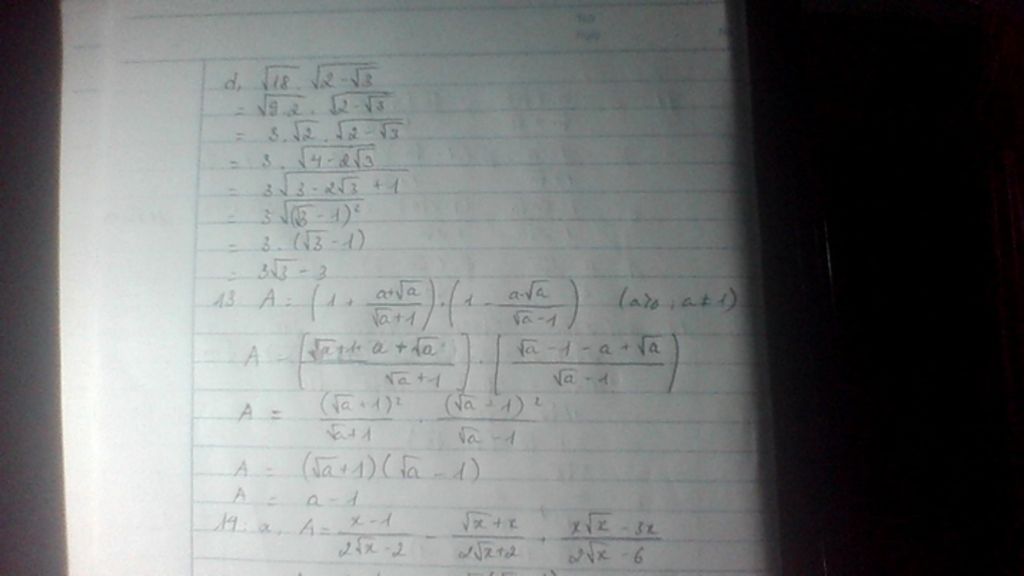 d, √18 . √(2-√3)
= √(9.2) . √(2-√3)
= 3.√2 . √(2-√3)
= 3 . √(4-2√3)
= 3√(3-2√3+1)
= 3√((√3-1)²)
= 3 . (√3-1)
= 3√3 - 3
13. A = (1 + (a+√a)/(√a+1)) . (1 - (a-√a)/(√a-1)) (a≥0, a≠1)
A = [(√a+1+a+√a)/(√a+1)] . [(√a-1-a+√a)/(√a-1)]
A = (√a+1)²/(√a+1) . (√a-1)²/(√a-1)
A = (√a+1)(√a-1)
A = a-1
14. a. A = (x-1)/(2√x-2) - (√x+x)/(2√x+2) . (x√x-3x)/(2√x-6)